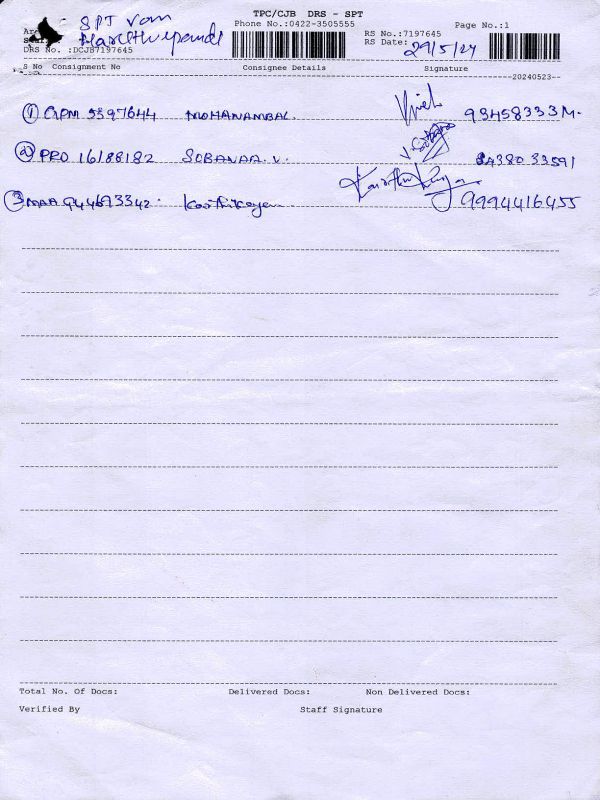 TPC/CJB DRS - SPT
SPT Vam
Phone No.:0422-3505555
Page No.:1
RS No.:7197645
RS Date: 29/5/24
DRS No. :DCJB7197645
S No Consignment No Consignee Details Signature
20240523--
① CPM 5397644 MOHANAMBAL. 93458333M.
② PRO 16188182 SOBANAA.V. 84380 33591
③ MAA 944673342. Karthikeyan 9994416455
Total No. Of Docs: Delivered Docs: Non Delivered Docs:
Verified By Staff Signature